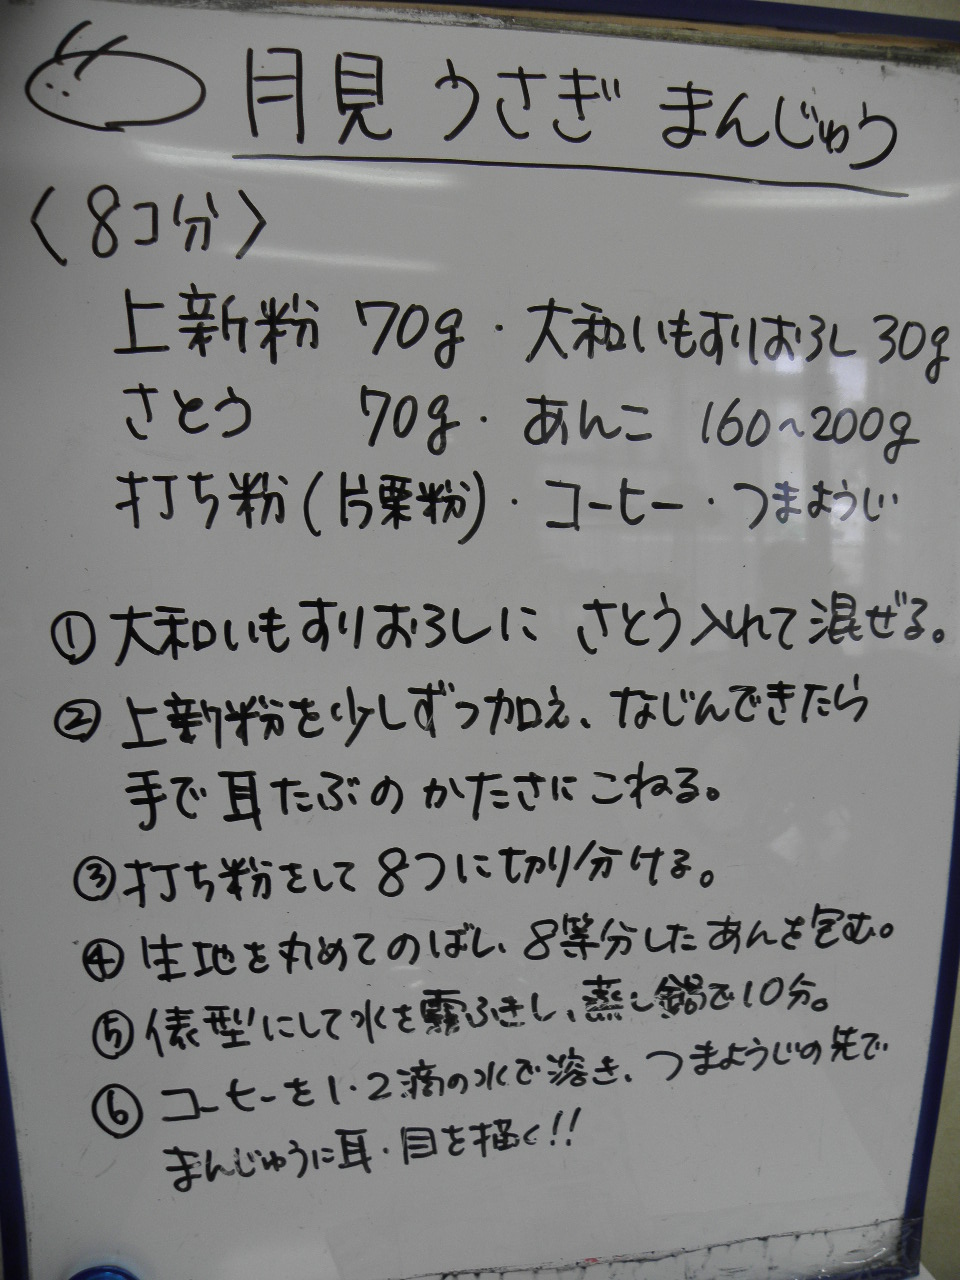 月見 うさぎ まんじゅう
〈8コ分〉
上新粉 70g・大和いもすりおろし 30g
さとう 70g・あんこ 160~200g
打ち粉(片栗粉)・コーヒー・つまようじ
① 大和いもすりおろしに さとう入れて混ぜる。
② 上新粉を少しずつ加え、なじんできたら
手で耳たぶのかたさにこねる。
③ 打ち粉をして8つに切り分ける。
④ 生地を丸めてのばし、8等分したあんを包む。
⑤ 俵型にして水を霧ふきし、蒸し鍋で10分。
⑥ コーヒーを1・2滴の水で溶き、つまようじの先で
まんじゅうに耳・目を描く!!